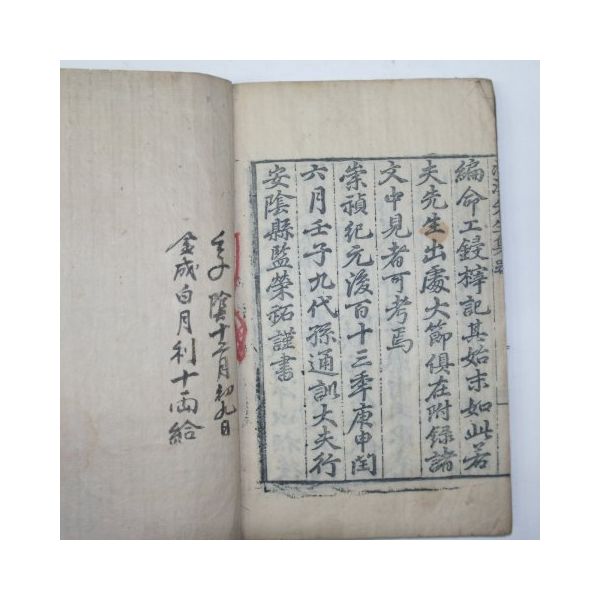 編命工鋟梓記其始末如此若
夫先生出處大節俱在附録諸
文中見者可考焉
崇禎紀元後百十三秊庚申閏
六月壬子九代孫通訓大夫行
安陰縣監榮祏謹書
壬子陰十二月初九日
金成白月利十両給